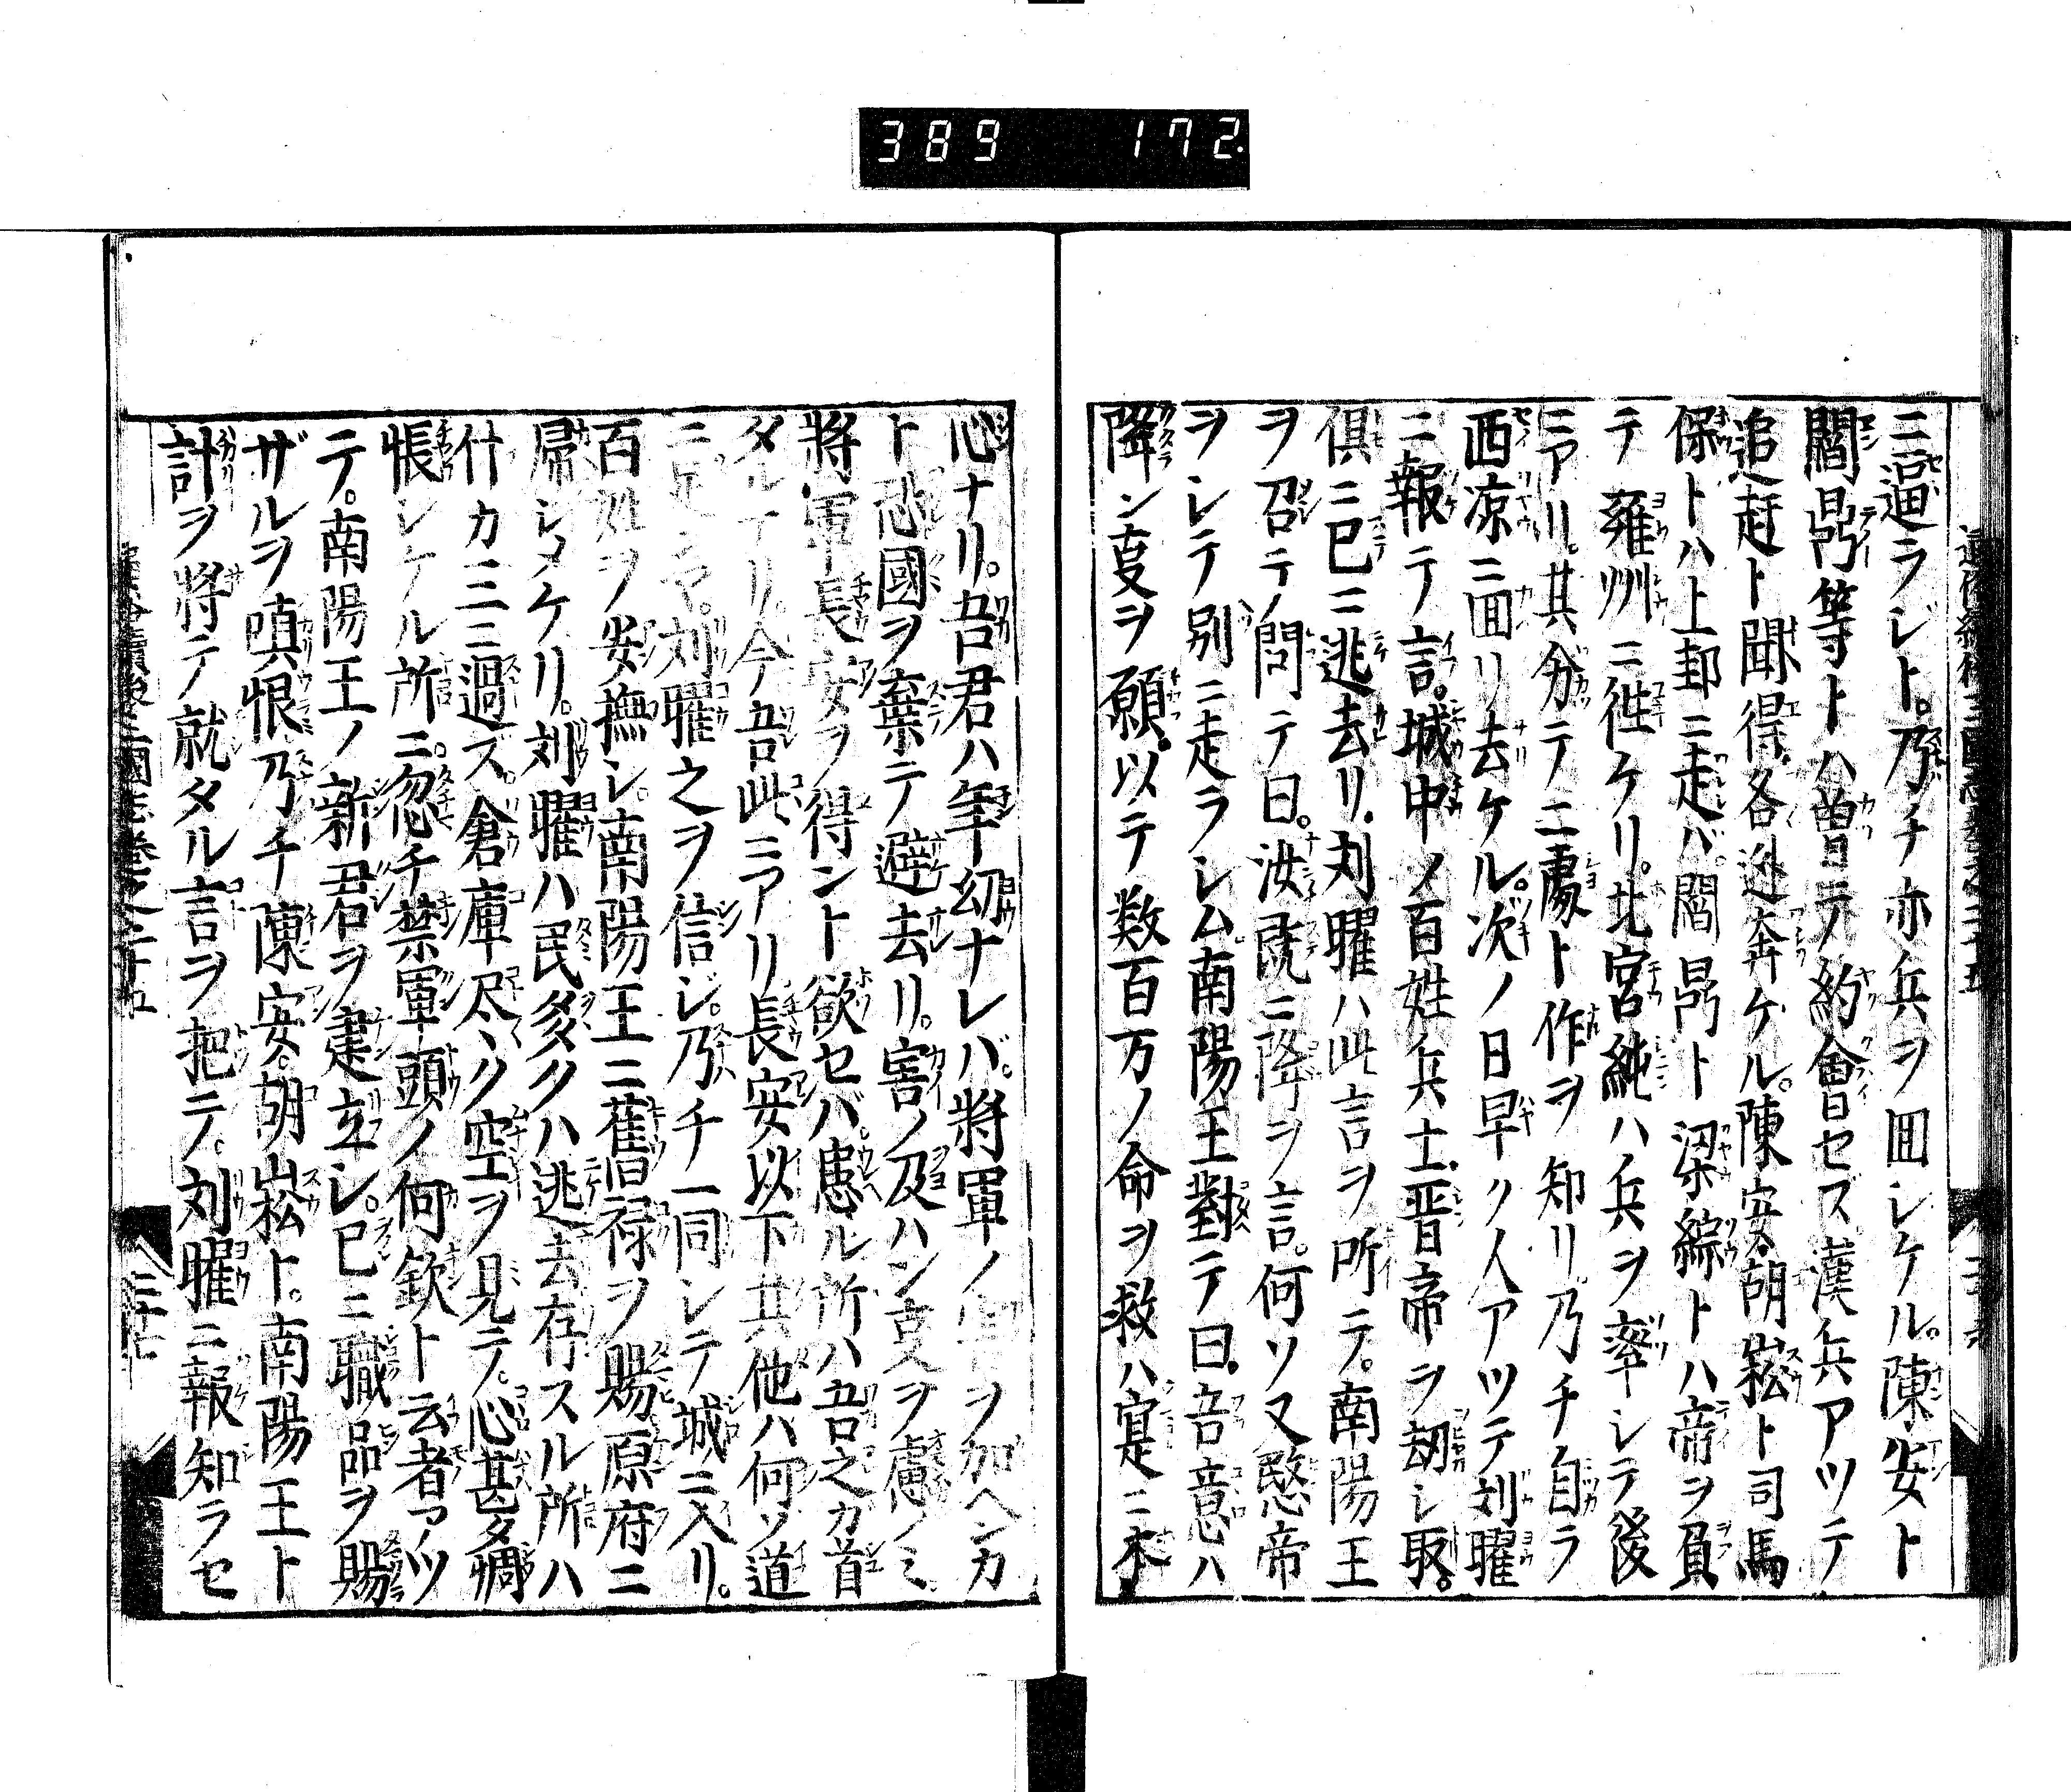 389 172.
ニ逼ラレト。乃チ亦兵ヲ回シケル。陳安ト
閻鼎等トハ曽テ約會セス漢兵アツテ
追赶ト聞得。各逊奔ケル。陳安胡崧ト司馬
保トハ上邽ニ走バ。閻鼎ト梁綜トハ帝ヲ負
テ雍州ニ徃ケリ。北宮純ハ兵ヲ率シテ後
ニアリ。其分テ二處ト作ヲ知リ。乃チ自ラ
西凉ニ回リ去ケル。次ノ日早ク人アツテ刘曜
ニ報テ言。城中ノ百姓兵士晋帝ヲ刼シ取。
俱ニ已ニ逃去リ。刘曜ハ此言ヲ所テ。南陽王
ヲ召テ問テ曰。汝既ニ降ヲ言。何ソ又愍帝
ヲシテ別ニ走ラシム。南陽王對テ曰。吾意ハ
降ン㕝ヲ願。以テ数百万ノ命ヲ救ハ寔ニ本
心ナリ。吾君ハ年幼ナレバ。將軍ノ害ヲ加ヘンカ
ト恐國ヲ棄テ避去リ。害ノ及ハン㕝ヲ慮ノミ
將軍長安ヲ得ント欲セバ。患ル所ハ吾之カ首
タルナリ。今吾此ニアリ長安以下共他ハ何ソ道
ニ足ンヤ。刘曜之ヲ信シ。乃チ一同シテ城ニ入リ。
百姓ヲ安撫シ。南陽王ニ舊禄ヲ賜原府ニ
歸シメケリ。刘曜ハ民多クハ逃去存スル所ハ
什カ二三ニ過ス。倉庫尽ク空ヲ見テ。心甚タ惆
悵シケル所ニ。忽チ禁軍頭ノ何欽ト云者アツ
テ。南陽王ノ新君ヲ建立シ。已ニ職品ヲ賜
ザルヲ嗔恨乃チ陳安。胡崧ト。南陽王ト
計ヲ將テ就タル言ヲ把テ。刘曜ニ報知ラセ
續後三國志巻之二十五
二十七